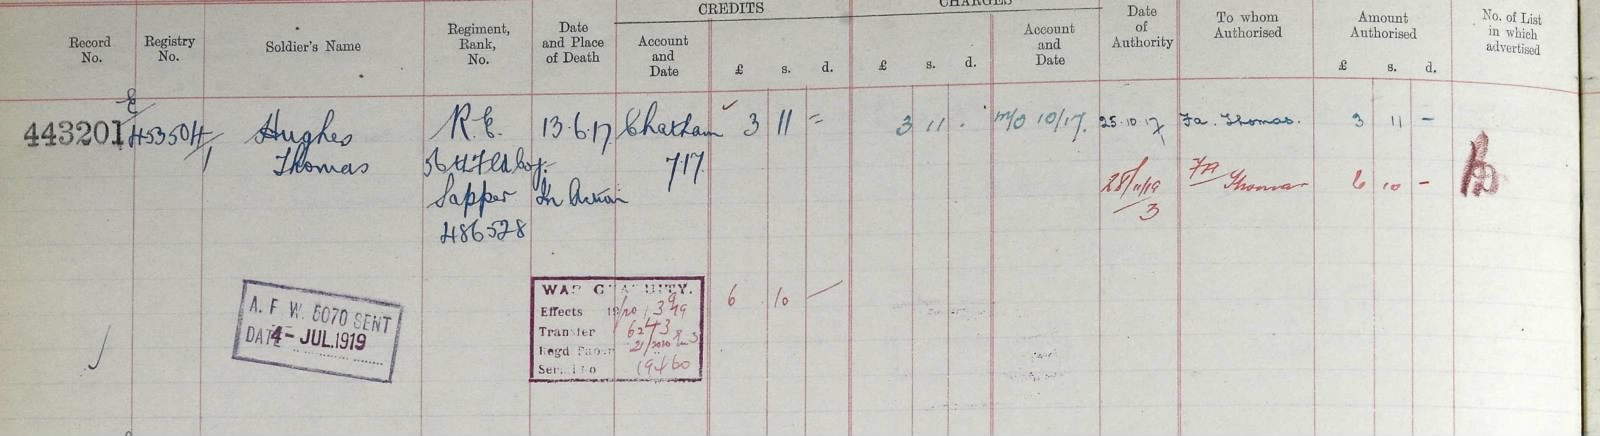 CREDITS
CHARGES
Record No.
Registry No.
Soldier's Name
Regiment, Rank, No.
Date and Place of Death
Account and Date
£ s. d.
£ s. d.
Account and Date
Date of Authority
To whom Authorised
Amount Authorised
£ s. d.
No. of List in which advertised
E
443201 453504/1 Hughes R.E. 13.6.17 Chatham 3 11 = 3 11 . M/O 10/17. 25.10.17 Fa. Thomas. 3 11 -
Thomas 7.17.
Sapper In Action
28/11/19 Fa Thomas 6 10 -
3
486528
WAR GRATUITY.
Effects
Transfer
Regd Paper
Serial No
6 10 -
A. F. W. 5070 SENT
DATE 4- JUL.1919